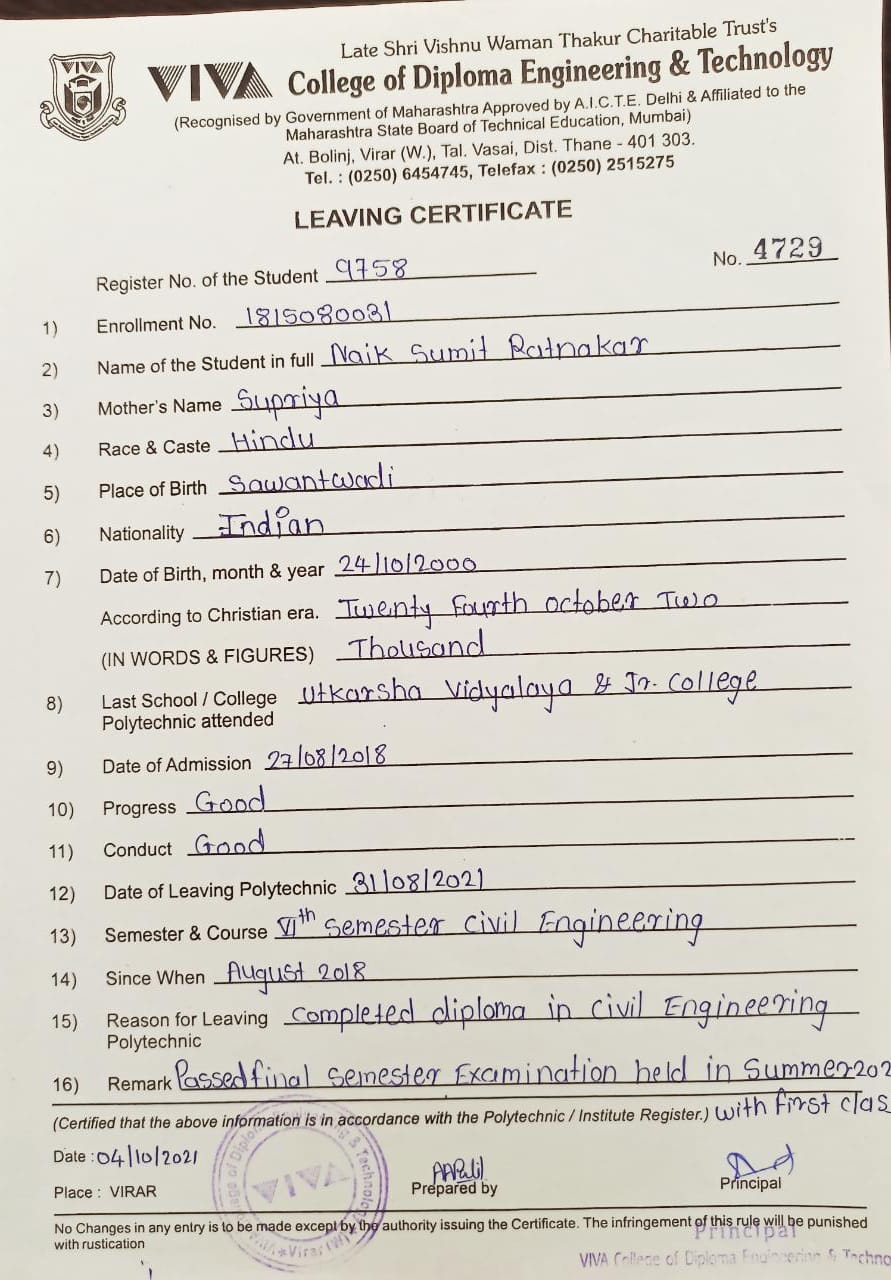 VIVA
Late Shri Vishnu Waman Thakur Charitable Trust's
VIVA College of Diploma Engineering & Technology
(Recognised by Government of Maharashtra Approved by A.I.C.T.E. Delhi & Affiliated to the
Maharashtra State Board of Technical Education, Mumbai)
At. Bolinj, Virar (W.), Tal. Vasai, Dist. Thane - 401 303.
Tel. : (0250) 6454745, Telefax : (0250) 2515275
LEAVING CERTIFICATE
Register No. of the Student 9758 No. 4729
1) Enrollment No. 1815080031
2) Name of the Student in full Naik Sumit Ratnakar
3) Mother's Name Supriya
4) Race & Caste Hindu
5) Place of Birth Sawantwadi
6) Nationality Indian
7) Date of Birth, month & year 24/10/2000
According to Christian era. Twenty Fourth october Two
(IN WORDS & FIGURES) Thousand
8) Last School / College Utkarsha Vidyalaya & Jr. College
Polytechnic attended
9) Date of Admission 27/08/2018
10) Progress Good
11) Conduct Good
12) Date of Leaving Polytechnic 31/08/2021
13) Semester & Course VIth Semester Civil Engineering
14) Since When August 2018
15) Reason for Leaving completed diploma in Civil Engineering
Polytechnic
16) Remark Passed final Semester Examination held in Summer 202
(Certified that the above information is in accordance with the Polytechnic / Institute Register.) with first clas
Date : 04/10/2021
Place : VIRAR Prepared by Principal
No Changes in any entry is to be made except by the authority issuing the Certificate. The infringement of this rule will be punished
with rustication
Principal
VIVA College of Diploma Engineering & Techno